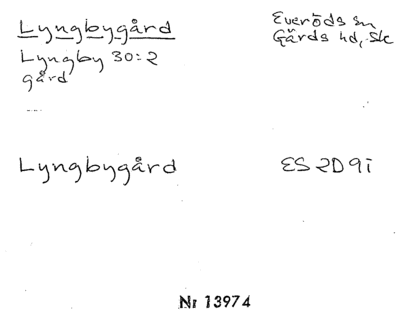 Lyngbygård
Everöds sn
Gärds hd, Sk
Lyngby 30:2
gård
Lyngbygård
ES 2D 9i
Nr 13974